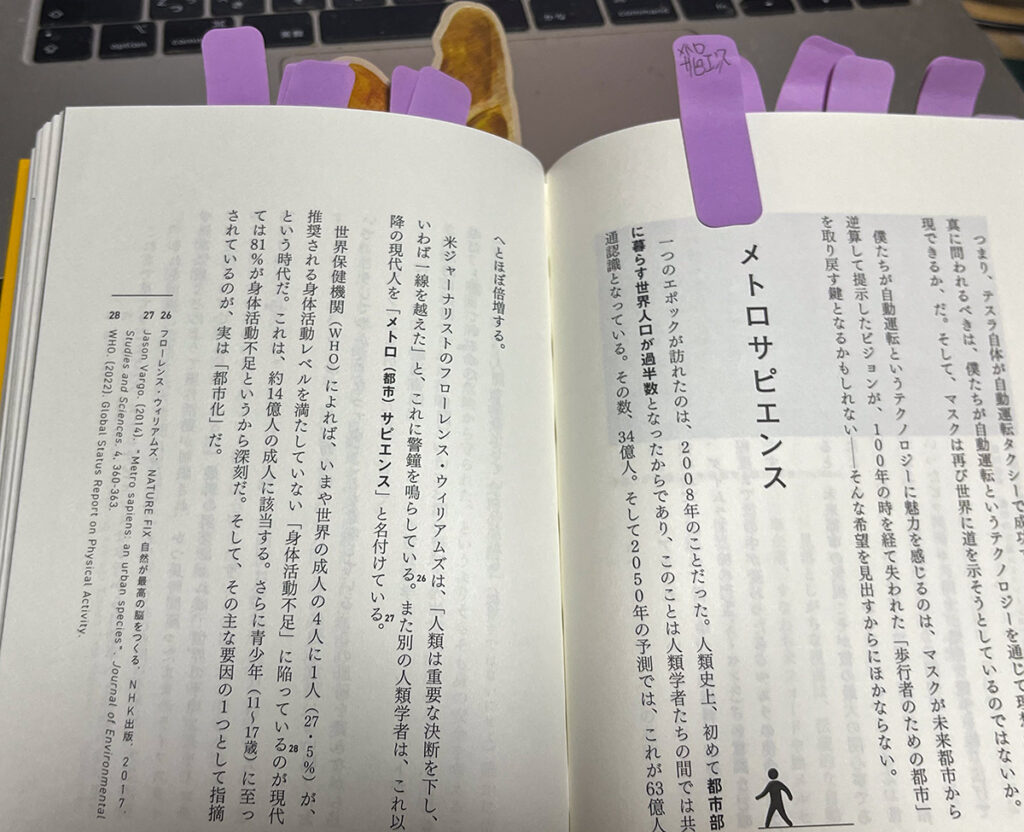 option
command
英数
かな
command
メトロ
サピエンス
つまり、テスラ自体が自動運転タクシーで成功
真に問われるべきは、僕たちが自動運転というテクノロジーを通じて
現できるか、だ。そして、マスクは再び世界に道を示そうとしているのではないか。
僕たちが自動運転というテクノロジーに魅力を感じるのは、マスクが未来都市から
逆算して提示したビジョンが、100年の時を経て失われた「歩行者のための都市」
を取り戻す鍵となるかもしれない――そんな希望を見出すからにほかならない。
メトロサピエンス
一つのエポックが訪れたのは、2008年のことだった。人類史上、初めて都市部
に暮らす世界人口が過半数となったからであり、このことは人類学者たちの間では共
通認識となっている。その数、34億人。そして2050年の予測では、これが63億人
へとほぼ倍増する。
米ジャーナリストのフローレンス・ウィリアムズは、「人類は重要な決断を下し、
いわば一線を越えた」と、これに警鐘を鳴らしている。26また別の人類学者は、これ以
降の現代人を「メトロ（都市）サピエンス」と名付けている。27
世界保健機関（WHO）によれば、いまや世界の成人の4人に1人（27・5%）が、
推奨される身体活動レベルを満たしていない「身体活動不足」に陥っているのが現代
という時代だ。これは、約14億人の成人に該当する。28さらに青少年（11〜17歳）に至っ
ては81%が身体活動不足というから深刻だ。そして、その主な要因の1つとして指摘
されているのが、実は「都市化」だ。
26 フローレンス・ウィリアムズ、NATURE FIX 自然が最高の脳をつくる、NHK出版、2017.
27 Jason Vargo. (2014). "Metro sapiens: an urban species". Journal of Environmental
Studies and Sciences. 4, 360-363.
28 WHO. (2022). Global Status Report on Physical Activity.